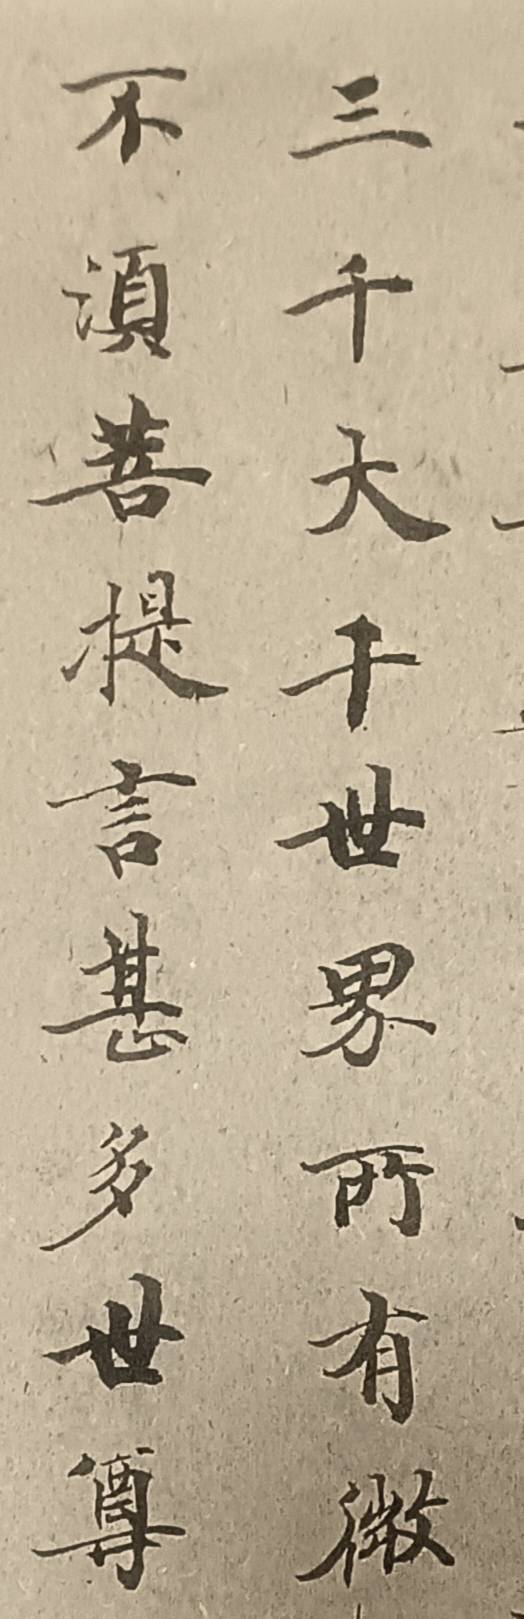 三千大千世界所有微
不須菩提言甚多世尊